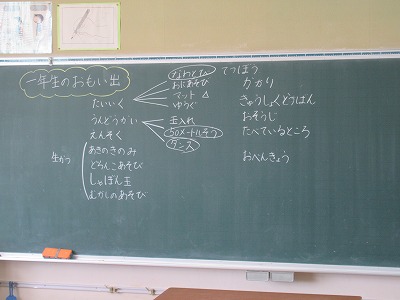 一年生のおもい出
たいいく
なわとび
おにあそび
マット △
ゆうぐ
うんどうかい
玉入れ
50メートルそう
ダンス
えんそく
生かつ
あきのきのみ
どろんこあそび
しゃぼん玉
むかしのあそび
てつぼう
かかり
きゅうしょくとうばん
おそうじ
たべているところ
おべんきょう